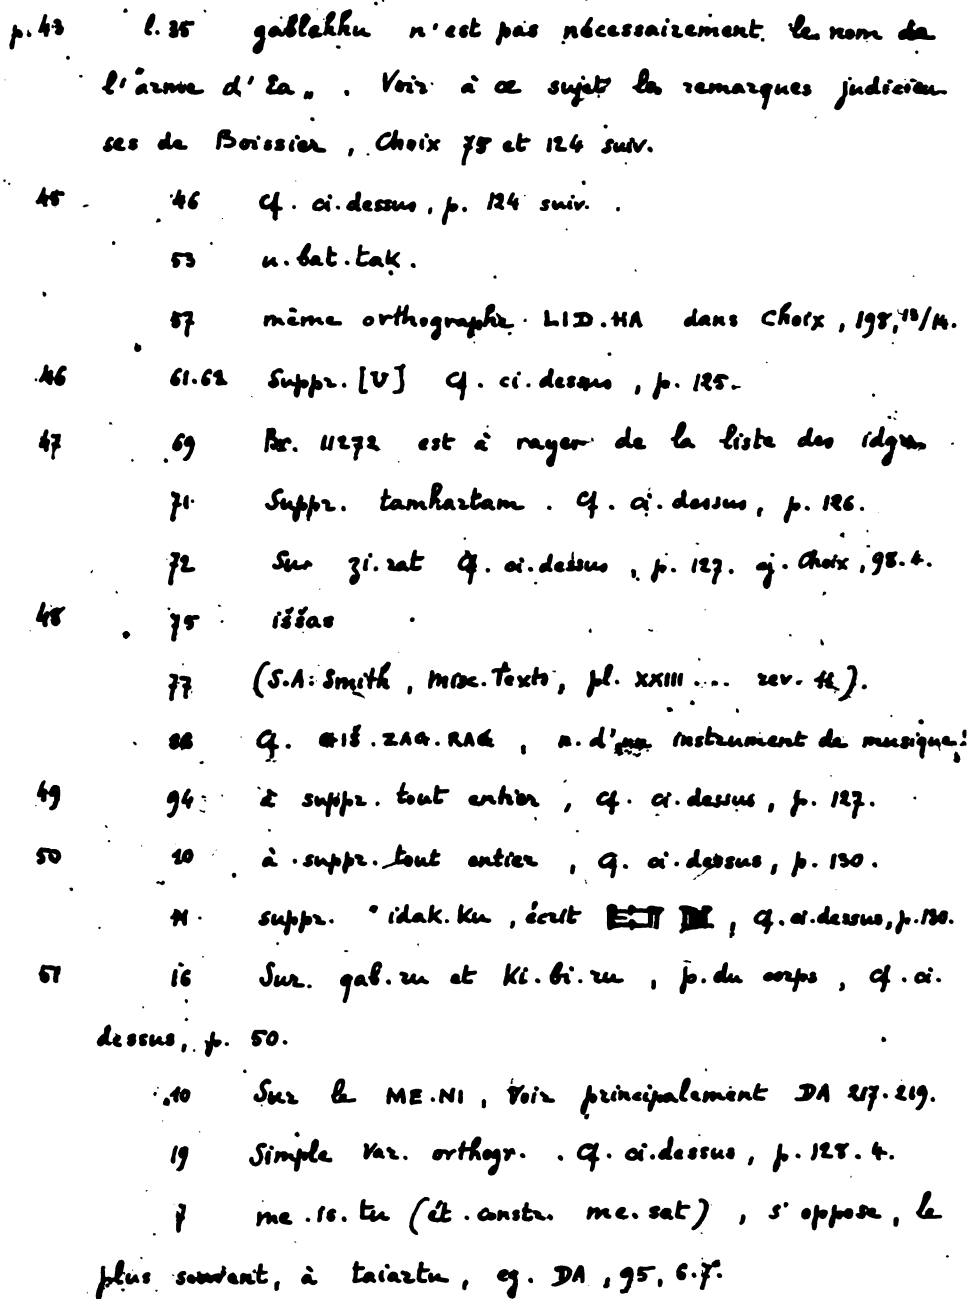 p. 43 l. 35 gablahhu n'est pas nécessairement le nom de
l'"arme d'Ea„ . Voir à ce sujet les remarques judicieu
ses de Boissier, Choix 75 et 124 suiv.
45 46 Cf. ci.dessus, p. 124 suiv.
53 u.bat.tak.
57 même orthographe LID.HA dans Choix, 198, 13/14.
46 61.62 Suppr. [U] Cf. ci.dessus, p. 125.
47 69 Br. 11272 est à rayer de la liste des idgrs.
71 Suppr. tamhartam. Cf. ci.dessus, p. 126.
72 Sur zi.rat Cf. ci.dessus, p. 127. aj. Choix, 98.4.
48 75 iššas
77 (S.A. Smith, Misc. Texts, pl. XXIII .... rev. ).
Cf. GIŠ.ZAG.RAG, n. d'un instrument de musique!
49 94 à suppr. tout entier, cf. ci.dessus, p. 127.
50 10 à suppr. tout entier, Cf. ci.dessus, p. 130.
11. suppr. "idak.ku, écrit , Cf. ci.dessus, p. 130.
51 16 Sur gab.ru et Ki.bi.ru, p. du corps, cf. ci.
dessus, p. 50.
10 Sur le ME.NI, voir principalement DA 217.219.
19 Simple Var. orthogr. . Cf. ci.dessus, p. 128.4.
7 me.is.tu (ét.constr. me.sat), s'oppose, le
plus souvent, à taiartu, eg. DA, 95, 6.7.